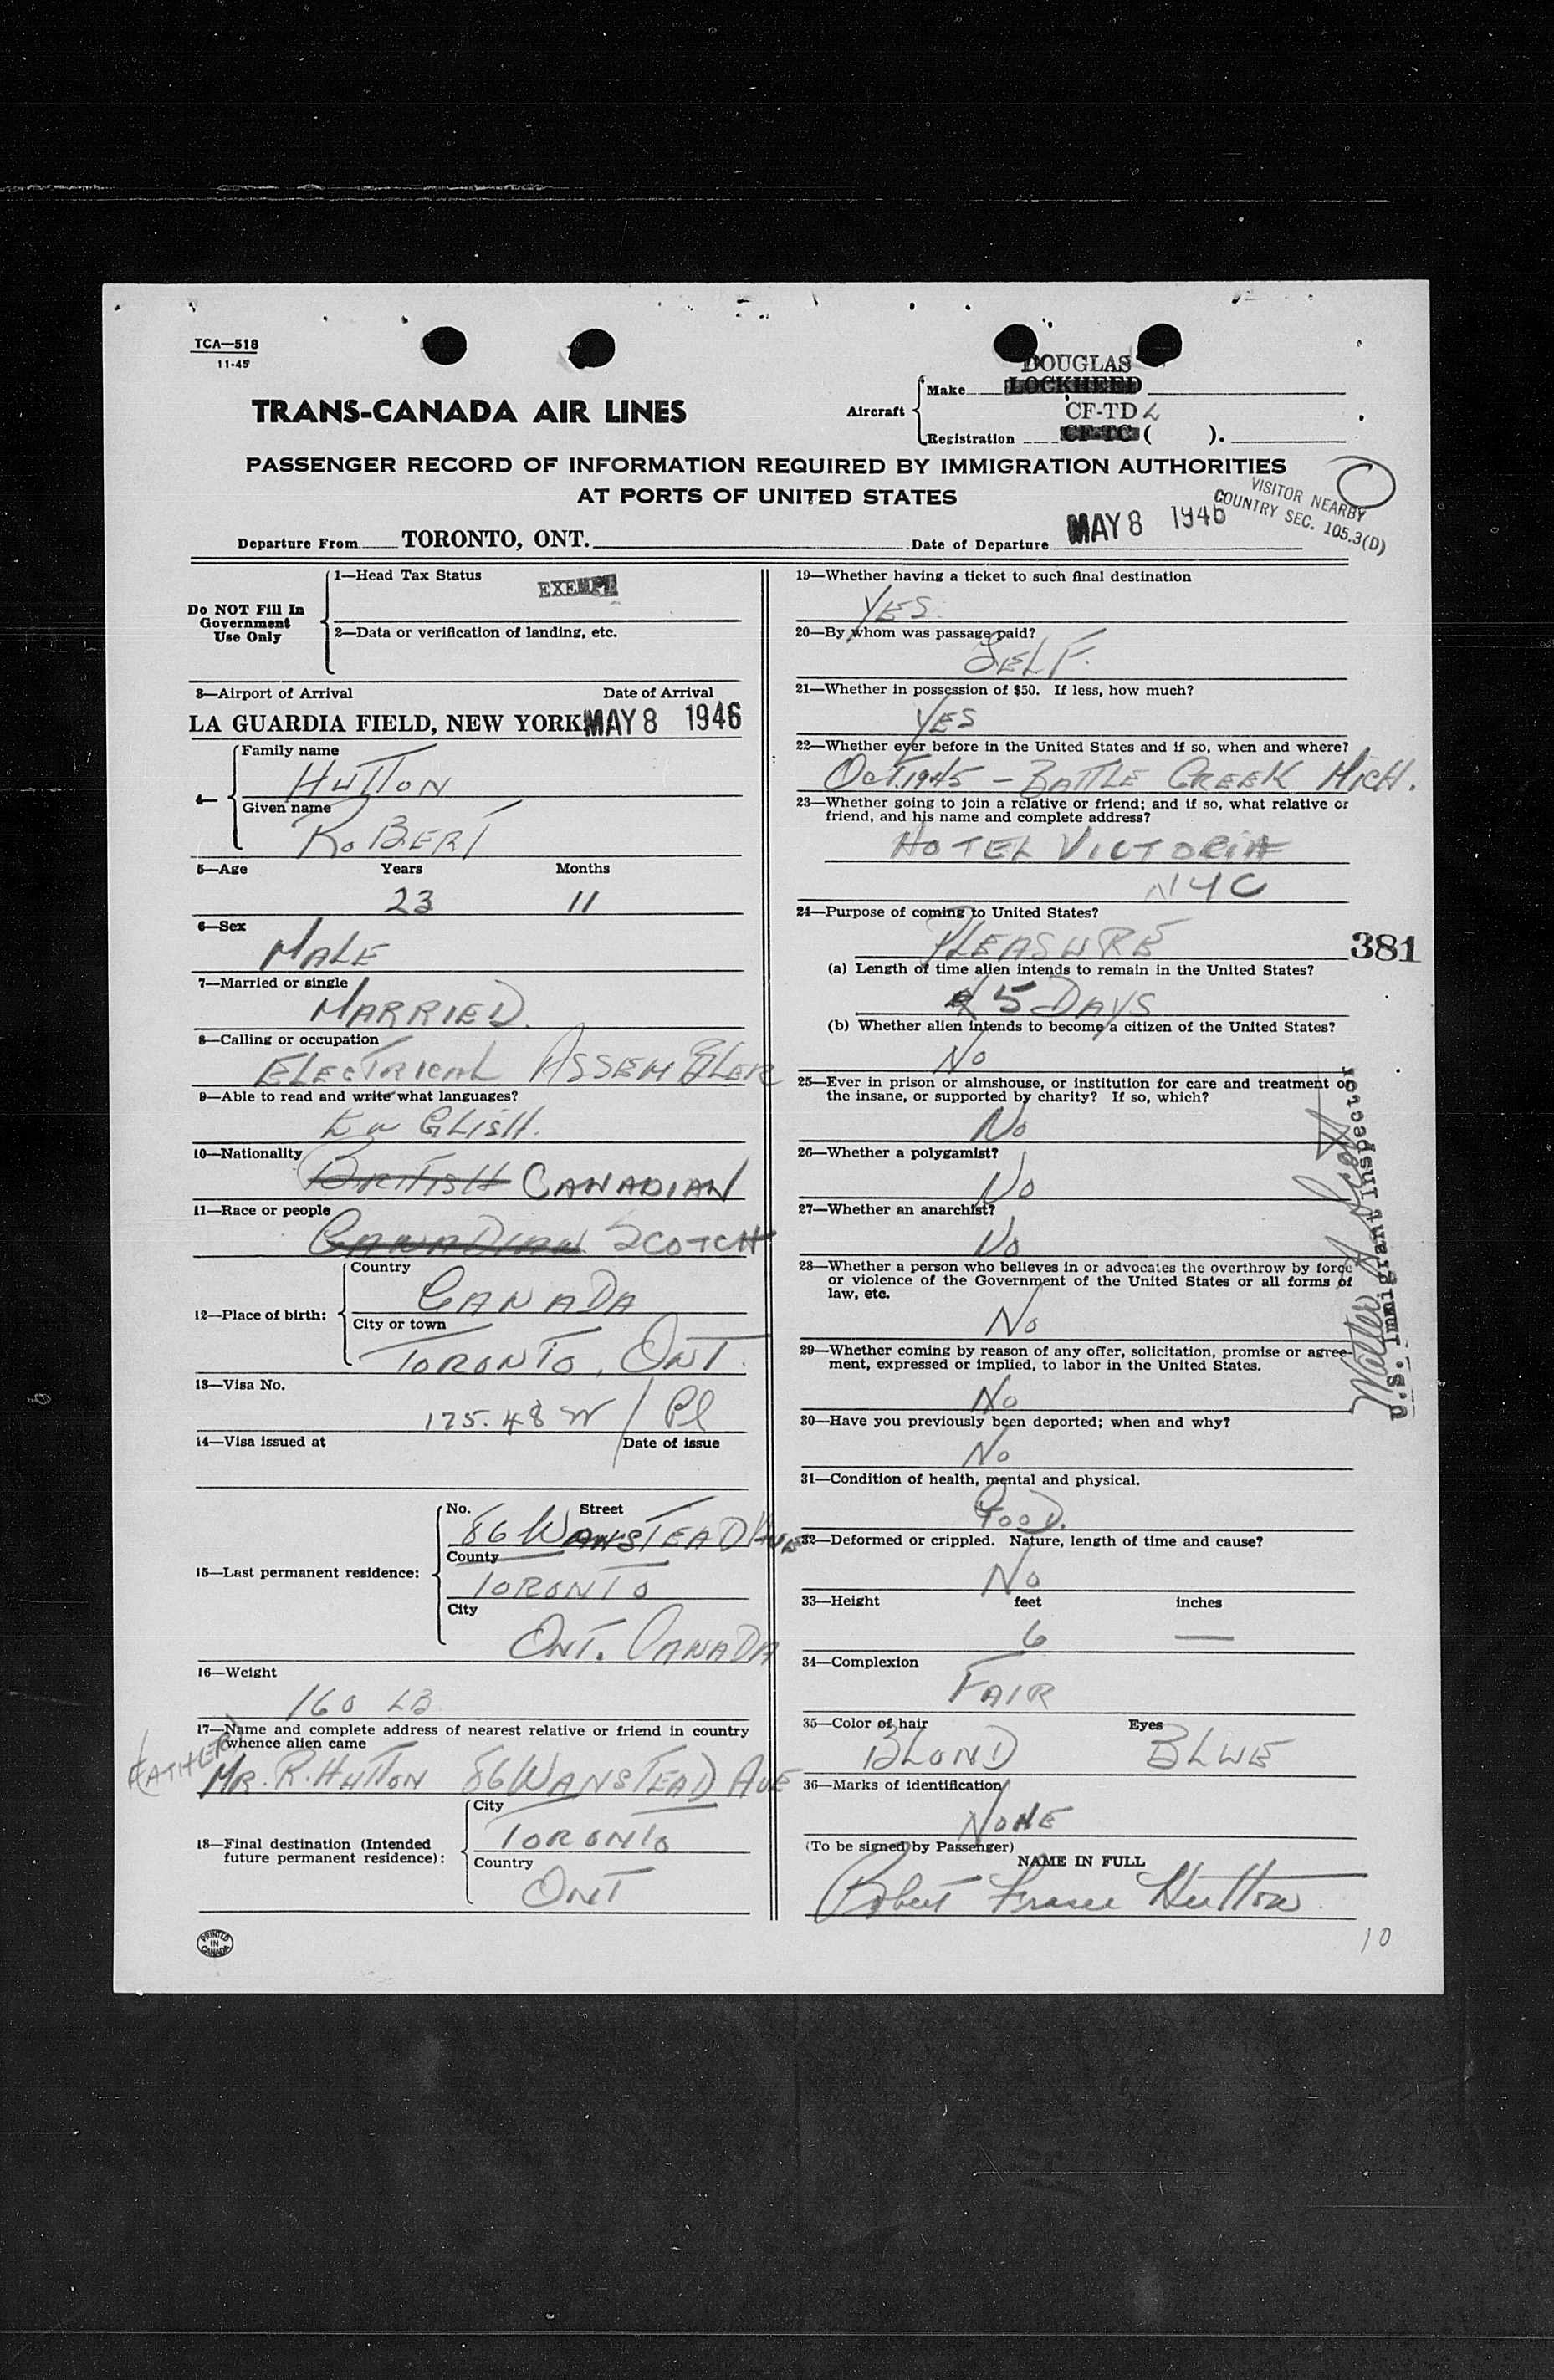 TCA—518
11-45
DOUGLAS
Make LOCKHEED
TRANS-CANADA AIR LINES
Aircraft
CF-TD L
Registration CF-TC ( ).
PASSENGER RECORD OF INFORMATION REQUIRED BY IMMIGRATION AUTHORITIES
AT PORTS OF UNITED STATES
VISITOR NEARBY
COUNTRY SEC. 105.3(D)
Departure From TORONTO, ONT. Date of Departure MAY 8 1946
Do NOT Fill In
Government
Use Only
1—Head Tax Status EXEMPT
2—Data or verification of landing, etc.
3—Airport of Arrival Date of Arrival
LA GUARDIA FIELD, NEW YORK MAY 8 1946
4— Family name
HUTTON
Given name
ROBERT
5—Age Years Months
23 11
6—Sex
MALE
7—Married or single
MARRIED
8—Calling or occupation
ELECTRICAL ASSEMBLER
9—Able to read and write what languages?
ENGLISH.
10—Nationality
BRITISH CANADIAN
11—Race or people
CANADIAN SCOTCH
12—Place of birth:
Country
CANADA
City or town
TORONTO, ONT.
13—Visa No.
175.48 W / Pl
14—Visa issued at Date of issue
15—Last permanent residence:
No. Street
86 WANSTEAD AVE
County
TORONTO
City
ONT. CANADA
16—Weight
160 LB
17—Name and complete address of nearest relative or friend in country
whence alien came
(FATHER)
MR. R. HUTTON 86 WANSTEAD AVE
18—Final destination (Intended
future permanent residence):
City
TORONTO
Country
ONT
PRINTED
IN
CANADA
19—Whether having a ticket to such final destination
YES
20—By whom was passage paid?
SELF.
21—Whether in possession of $50. If less, how much?
YES
22—Whether ever before in the United States and if so, when and where?
OCT. 1945 - BATTLE CREEK MICH.
23—Whether going to join a relative or friend; and if so, what relative or
friend, and his name and complete address?
HOTEL VICTORIA
NYC
24—Purpose of coming to United States?
PLEASURE
381
(a) Length of time alien intends to remain in the United States?
5 DAYS
(b) Whether alien intends to become a citizen of the United States?
NO
25—Ever in prison or almshouse, or institution for care and treatment of
the insane, or supported by charity? If so, which?
NO
26—Whether a polygamist?
NO
27—Whether an anarchist?
NO
28—Whether a person who believes in or advocates the overthrow by force
or violence of the Government of the United States or all forms of
law, etc.
NO
29—Whether coming by reason of any offer, solicitation, promise or agree-
ment, expressed or implied, to labor in the United States.
NO
30—Have you previously been deported; when and why?
NO
31—Condition of health, mental and physical.
GOOD.
32—Deformed or crippled. Nature, length of time and cause?
NO
33—Height feet inches
6 —
34—Complexion
FAIR
35—Color of hair Eyes
BLOND BLUE
36—Marks of identification
NONE
(To be signed by Passenger)
NAME IN FULL
Robert Fraser Hutton
10
U.S. Immigrant Inspector